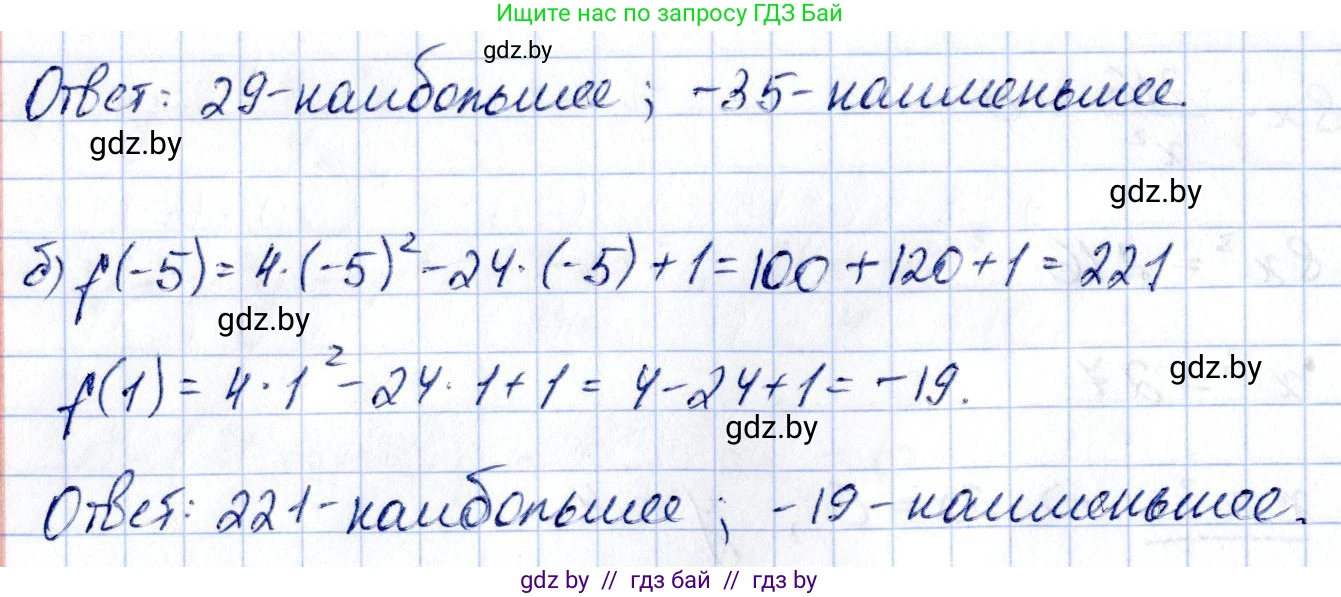 Ищите нас по запросу ГДЗ Бай
gdz.by
Ответ: 29-наибольшее; -35-наименьшее.
gdz.by
gdz.by
б) f(-5) = 4·(-5)² - 24·(-5) + 1 = 100 + 120 + 1 = 221
gdz.by
f(1) = 4·1² - 24·1 + 1 = 4 - 24 + 1 = -19.
gdz.by
gdz.by
Ответ: 221-наибольшее; -19-наименьшее.
gdz by // гдз бай // гдз by